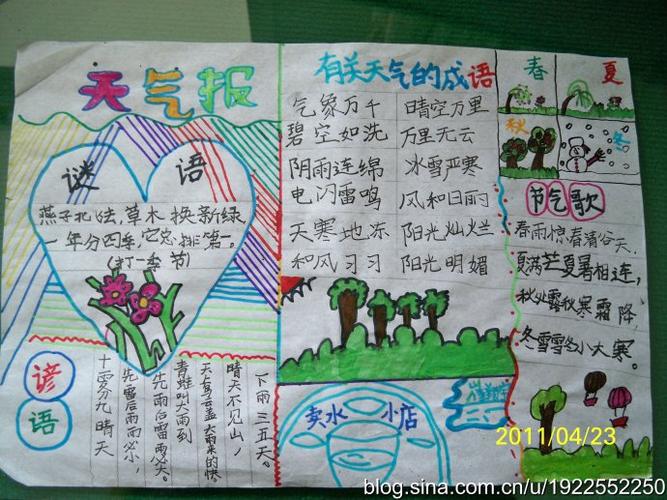 天气报
谜语
燕子北飞,草木换新绿
一年分四季,它总排第一。
(打一季节)
谚语
下雨三五天。
晴天不见山,
天上乌云盖大雨来的快
青蛙叫大雨到
先雨后雷雨必大。
先雷后雨雨必小,
十雾九晴天
有关天气的成语
气象万千 晴空万里
碧空如洗 万里无云
阴雨连绵 冰雪严寒
电闪雷鸣 风和日丽
天寒地冻 阳光灿烂
和风习习 阳光明媚
卖水小店
春
夏
秋
冬
节气歌
春雨惊春清谷天,
夏满芒夏暑相连,
秋处露秋寒霜降
冬雪雪冬小大寒。
2011/04/23
blog.sina.com.cn/u/1922552250